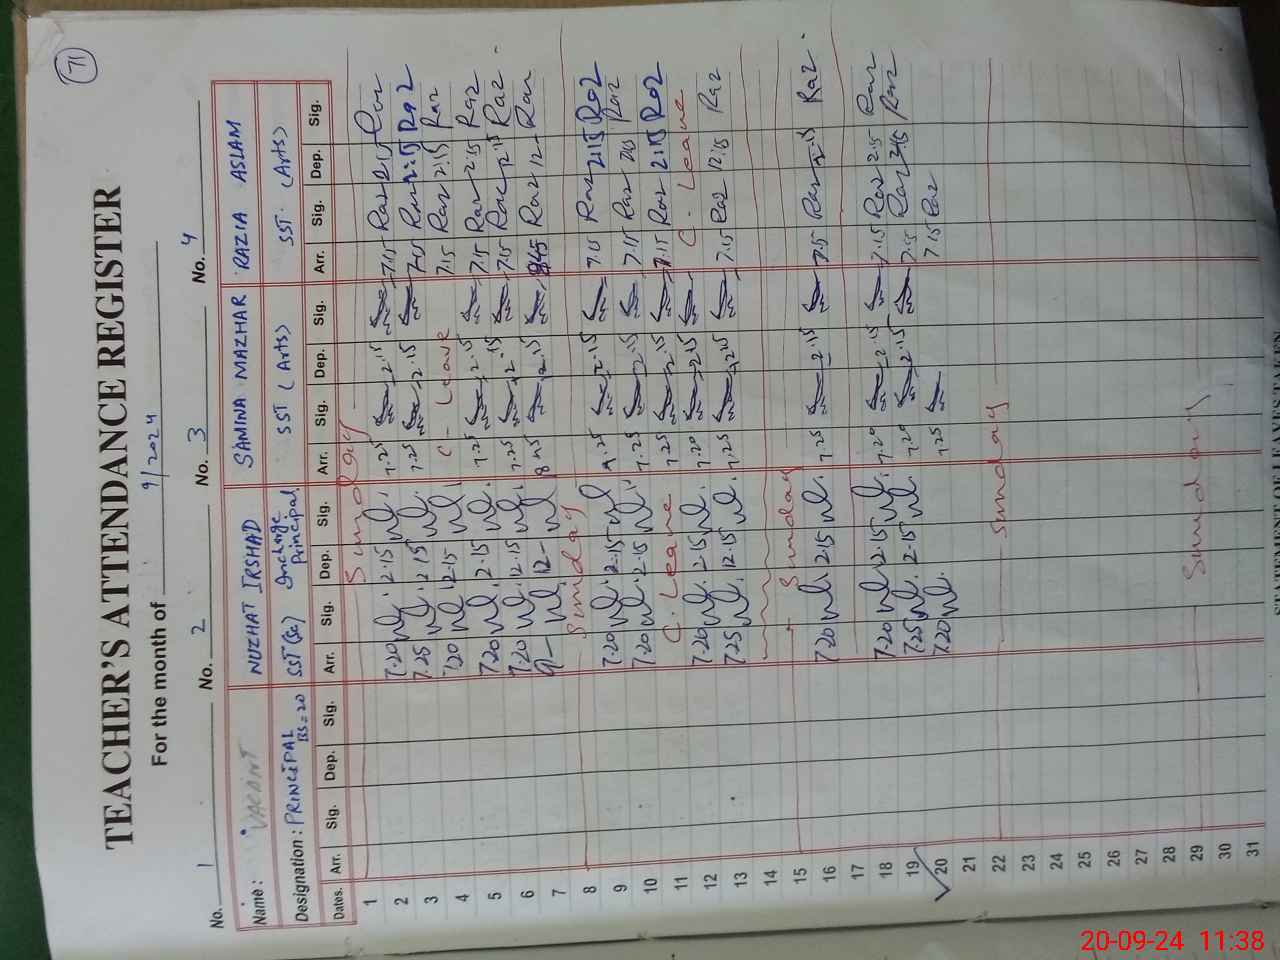 71
TEACHER'S ATTENDANCE REGISTER
For the month of 9/2024
No. 1 No. 2 No. 3 No. 4
Name: VACANT NUZHAT IRSHAD SAMINA MAZHAR RAZIA ASLAM
Designation: PRINCIPAL BS=20 SST(Sc) Incharge Principal SST (Arts) SST. (Arts)
Dates. Arr. Sig. Dep. Sig. Arr. Sig. Dep. Sig. Arr. Sig. Dep. Sig. Arr. Sig. Dep. Sig.
1 Sunday
2 7.20 2.15 7.25 2.15 7.15 Raz 2.15
3 7.25 2.15 7.25 2.15 7.15 Raz 2.15 Raz
4 7.20 2.15 C - Leave 7.15 Raz 2.15 Raz
5 7.20 2.15 7.25 2.15 7.15 Raz 2.15 Raz
6 7.20 2.15 7.25 2.15 7.15 Raz 2.15 Raz
7 9 12 8.45 12.15 8.45 Raz 12 Raz
8 Sunday
9 7.20 2.15 7.25 2.15 7.15 Raz 2.15 Raz
10 7.20 2.15 7.25 2.15 7.15 Raz 2.15 Raz
11 C. Leave 7.25 2.15 7.15 Raz 2.15 Raz
12 7.20 2.15 7.20 2.15 C. Leave
13 7.25 12.15 7.25 12.15 7.15 Raz 12.15 Raz
14
15 Sunday
16 7.20 2.15 7.25 2.15 7.15 Raz 2.15 Raz
17
18 7.20 2.15 7.20 2.15 7.15 Raz 2.15 Raz
19 7.25 2.15 7.20 2.15 7.15 Raz 2.15 Raz
20 7.20 7.25 7.15 Raz
21
22 Sunday
23
24
25
26
27
28
29 Sunday
30
31
20-09-24 11:38